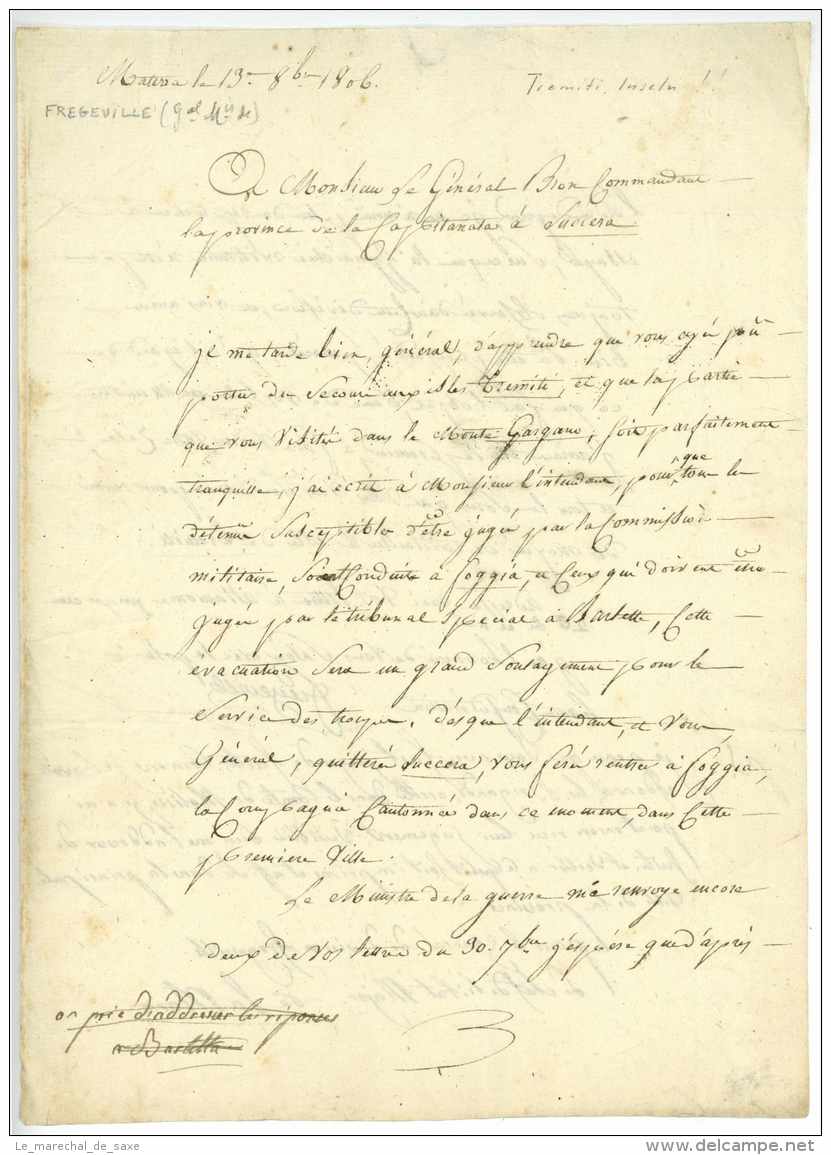 Matera le 13 8bre 1806.
Tremiti, Inseln !!
FREGEVILLE (Gal Mis de)
A Monsieur le Général Bron Commandant
la province de la Capitanata à Luccera
je me tarde bien, général, d'apprendre que vous ayés pû
porter du Secours aux isles Tremiti, et que la partie
que vous visitée dans le Monte Gargano, soit parfaitement
tranquille, j'ai ecrit à Monsieur l'intendant, pour que tous les
détenus susceptibles d'être jugés par la Commission
militaire, soient Conduits à foggia, et Ceux qui doivent être
jugés par le tribunal spécial à barlette, Cette
évacuation sera un grand soulagement pour le
Service des troupes. dés que l'intendant, et Vous
Général, quitterés Luccera, vous ferés rentrer à foggia,
la Compagnie Cantonnée dans ce moment, dans Cette
premiere Ville.
Le Ministre de la guerre m'a renvoyé encore
deux de vos lettres du 30. 7bre j'espère que d'après
on prie d'addresser les réponses
a Barletta
Le_marechal_de_saxe
www.delcampe.net